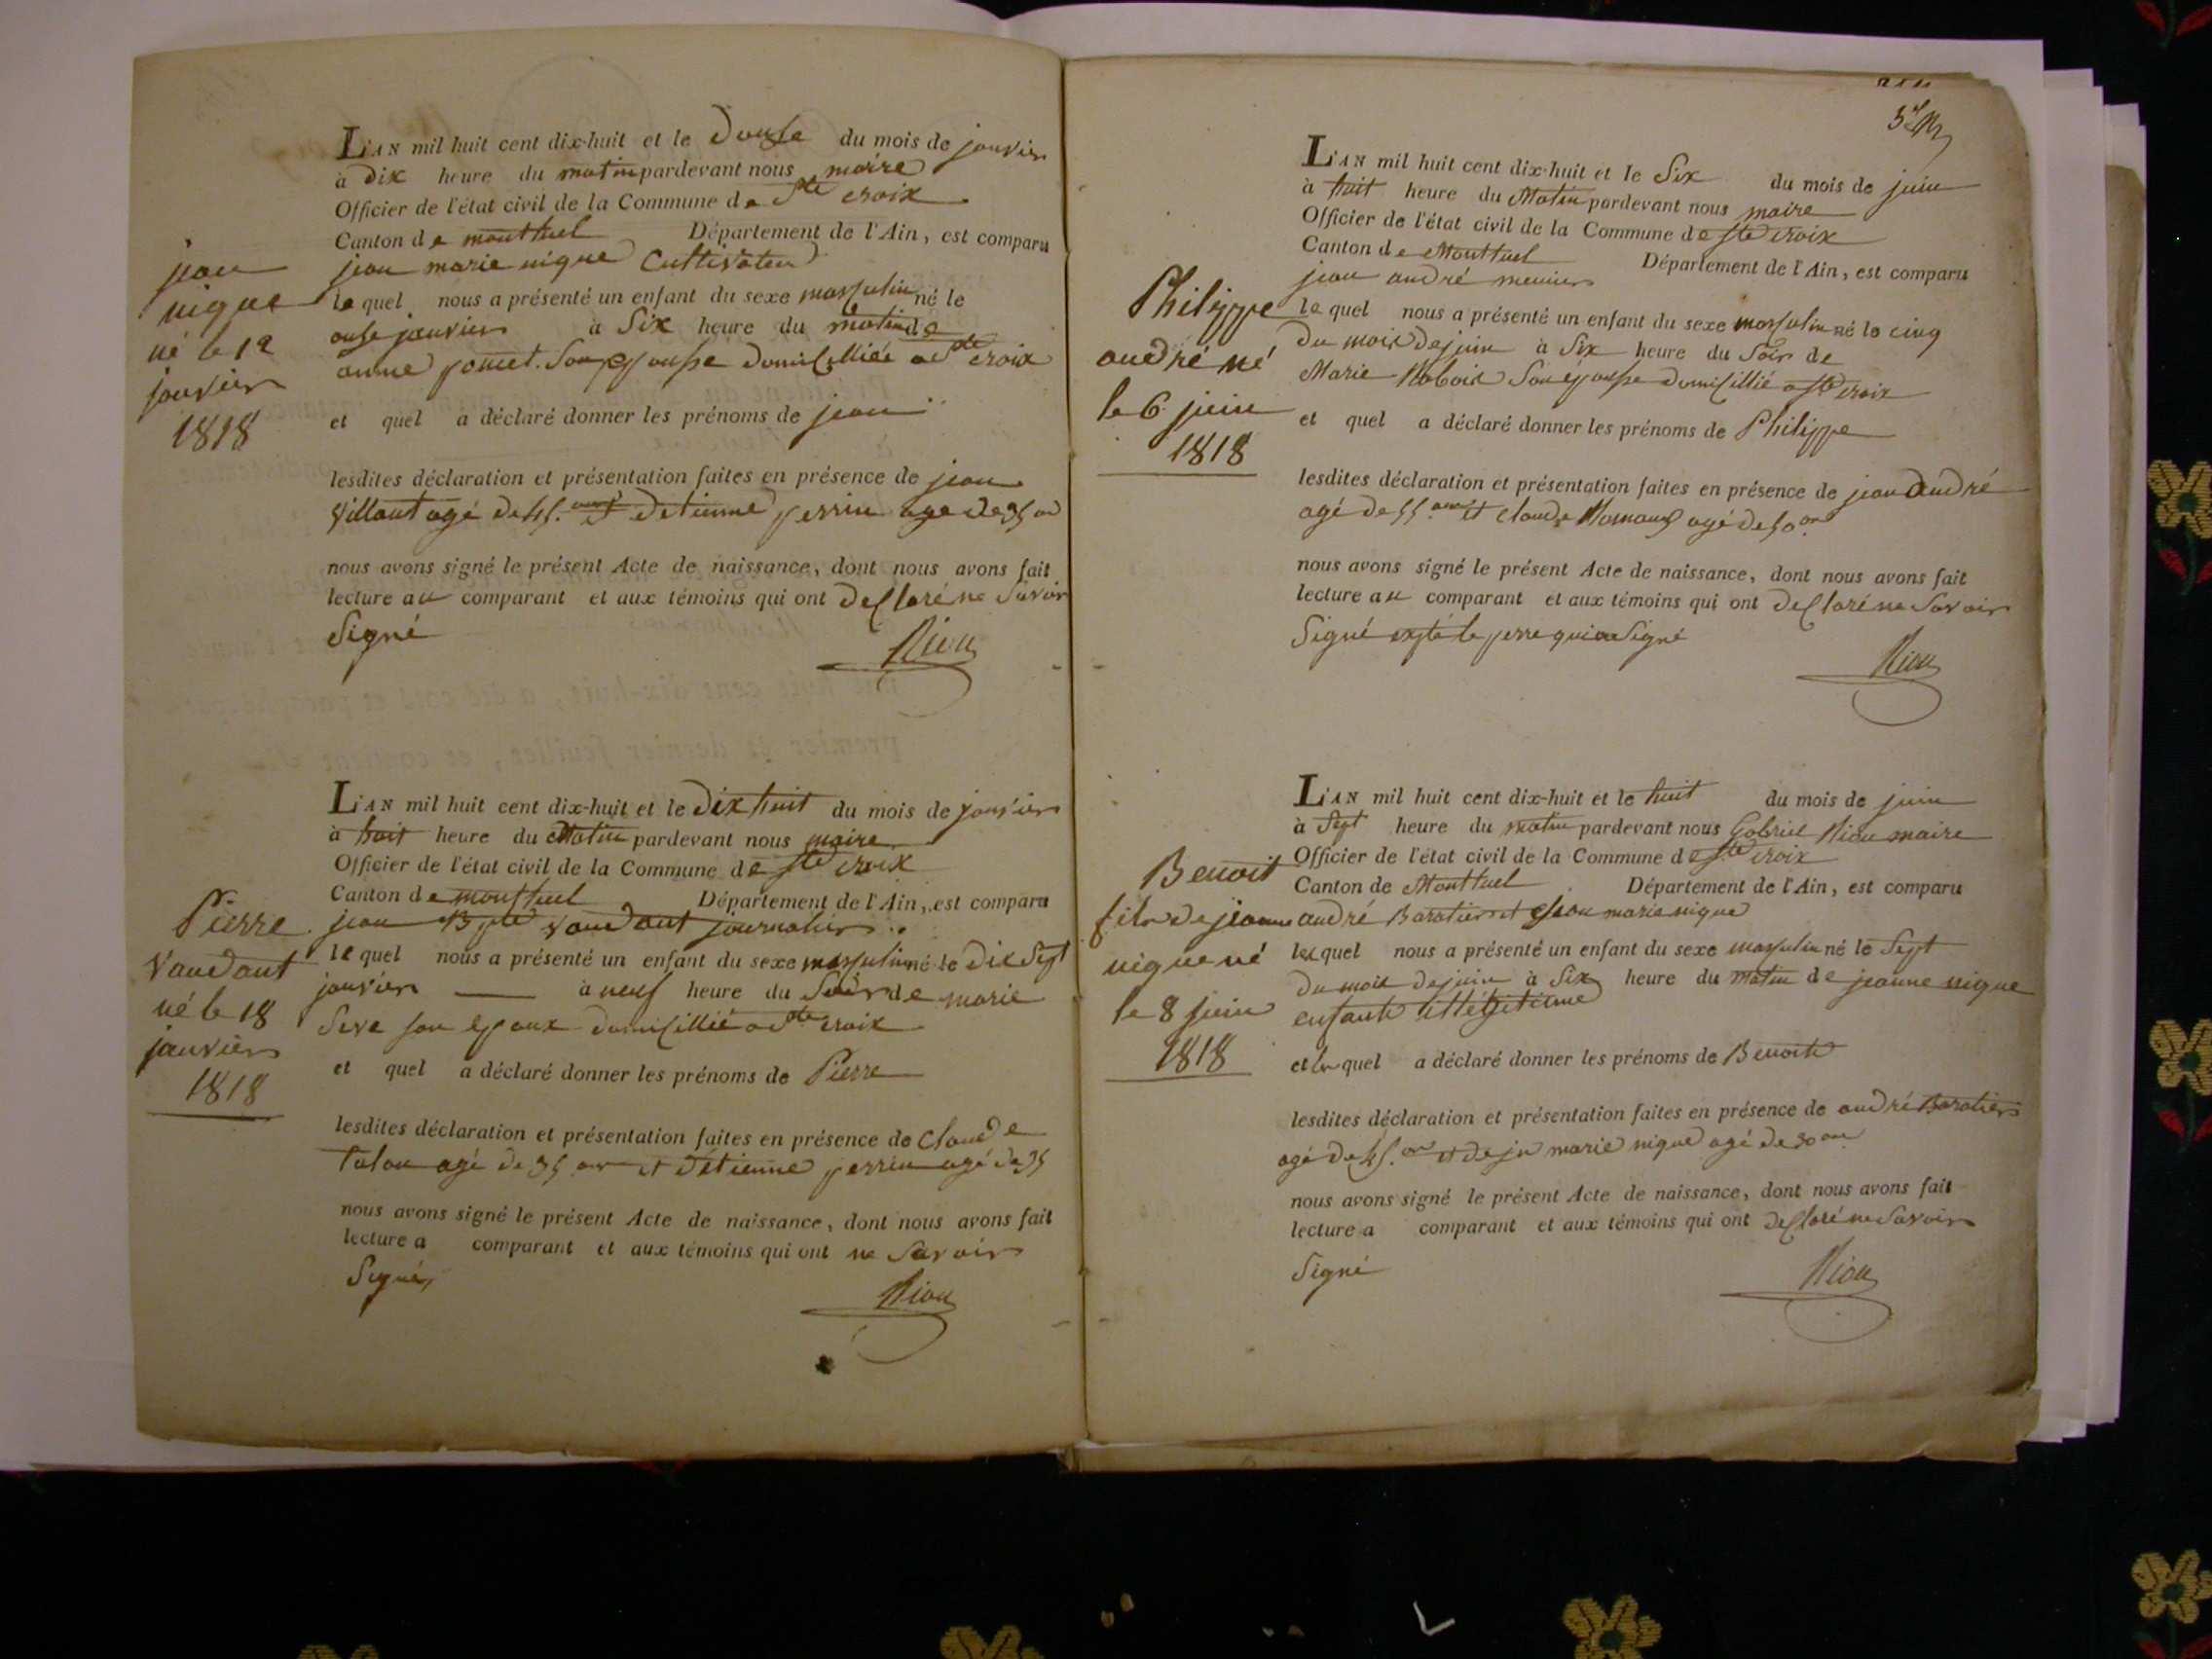 jean
nique
né le 12
janvier
1818
L'AN mil huit cent dix-huit et le douse du mois de janvier
à dix heure du matin pardevant nous maire
Officier de l'état civil de la Commune de Ste croix
Canton de montluel Département de l'Ain, est comparu
jean marie nique Cultivateur
lequel nous a présenté un enfant du sexe masculin né le
onse janvier à Six heure du matin de
anne poncet Son epouse domicilliée a Ste croix
et quel a déclaré donner les prénoms de jean
lesdites déclaration et présentation faites en présence de jean
Villant agé de 45 ans et detienne perrin age de 35 an
nous avons signé le présent Acte de naissance, dont nous avons fait
lecture au comparant et aux témoins qui ont declaré ne Savoir
Signé
Riou
Pierre
Vaudant
né le 18
janvier
1818
L'AN mil huit cent dix-huit et le dix huit du mois de janvier
à huit heure du Matin pardevant nous maire
Officier de l'état civil de la Commune de Ste croix
Canton de montluel Département de l'Ain, est comparu
jean Bpte vaudant journalier
lequel nous a présenté un enfant du sexe masculin né le dix Sept
janvier à neuf heure du Soir de marie
Seve son epoux domicillié a Ste croix
et quel a déclaré donner les prénoms de Pierre
lesdites déclaration et présentation faites en présence de Claude
talon agé de 35 an et détienne perrin agé de 35
nous avons signé le présent Acte de naissance, dont nous avons fait
lecture a comparant et aux témoins qui ont ne Savoir
Signé
Riou
Philippe
andré né
le 6 juin
1818
L'AN mil huit cent dix-huit et le Six du mois de juin
à huit heure du Matin pardevant nous maire
Officier de l'état civil de la Commune de Ste croix
Canton de Montluel Département de l'Ain, est comparu
jean andré meunier
lequel nous a présenté un enfant du sexe masculin né le cinq
du mois de juin à Six heure du Soir de
Marie Son épouse domicillié a Ste croix
et quel a déclaré donner les prénoms de Philippe
lesdites déclaration et présentation faites en présence de jean andré
agé de 55 ans et claude agé de 50 an
nous avons signé le présent Acte de naissance, dont nous avons fait
lecture au comparant et aux témoins qui ont declaré ne Savoir
Signé le perre qui a Signé
Riou
Benoit
fils de jeanne
nique né
le 8 juin
1818
L'AN mil huit cent dix-huit et le huit du mois de juin
à Sept heure du matin pardevant nous Gabriel Riou maire
Officier de l'état civil de la Commune de Ste croix
Canton de Montluel Département de l'Ain, est comparu
andré Baratier et jean marie nique
lesquel nous a présenté un enfant du sexe masculin né le Sept
du mois de juin à Six heure du matin de jeanne nique
enfant illégitime
et lequel a déclaré donner les prénoms de Benoit
lesdites déclaration et présentation faites en présence de andré Baratier
agé de 45 an et de jn marie nique agé de 30 an
nous avons signé le présent Acte de naissance, dont nous avons fait
lecture a comparant et aux témoins qui ont declaré ne Savoir
Signé
Riou